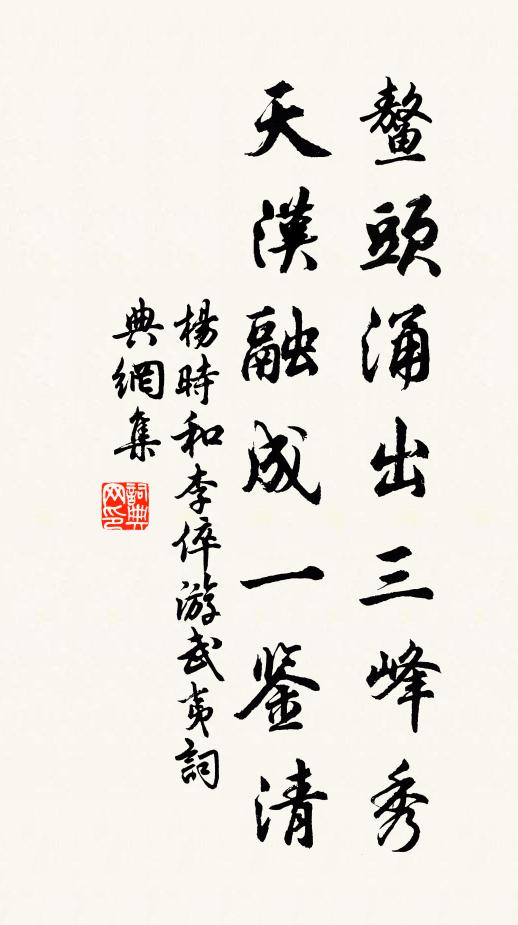 鰲頭涌出三峰秀
天漢融成一鉴清
楊時和李倅游武夷詞
典網集
詞典网印